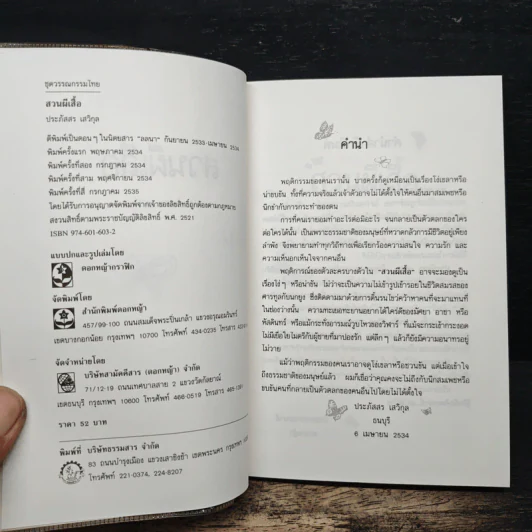 ชุดวรรณกรรมไทย
สวนผีเสื้อ
ประภัสสร เสวิกุล
ตีพิมพ์เป็นตอนๆ ในนิตยสาร "ลลนา" กันยายน 2533-เมษายน 2534
พิมพ์ครั้งแรก พฤษภาคม 2534
พิมพ์ครั้งที่สอง กรกฎาคม 2534
พิมพ์ครั้งที่สาม พฤศจิกายน 2534
พิมพ์ครั้งที่สี่ กรกฎาคม 2535
โดยได้รับการอนุญาตจัดพิมพ์จากเจ้าของลิขสิทธิ์ถูกต้องตามกฎหมาย
สงวนลิขสิทธิ์ตามพระราชบัญญัติลิขสิทธิ์ พ.ศ. 2521
ISBN 974-601-603-2
แบบปกและรูปเล่มโดย
ดอกหญ้ากราฟิก
จัดพิมพ์โดย
สำนักพิมพ์ดอกหญ้า
457/99-100 ถนนสมเด็จพระปิ่นเกล้า แขวงอรุณอมรินทร์
เขตบางกอกน้อย กรุงเทพฯ 10700 โทรศัพท์ 434-0235 โทรสาร
จัดจำหน่ายโดย
บริษัทสามัคคีสาร (ดอกหญ้า) จำกัด
71/12-19 ถนนเทศบาลสาย 2 แขวงวัดกัลยาณ์
เขตธนบุรี กรุงเทพฯ 10600 โทรศัพท์ 466-0519 โทรสาร
ราคา 52 บาท
พิมพ์ที่ บริษัทธรรมสาร จำกัด
83 ถนนบำรุงเมือง แขวงเสาชิงช้า เขตพระนคร กรุงเทพฯ
โทรศัพท์ 221-0374, 224-8207
คำนำ
พฤติกรรมของคนเรานั้น บางครั้งก็ดูเหมือนเป็นเรื่องโง่เขลาหรือ
น่าขบขัน ทั้งที่ความจริงแล้วเจ้าตัวอาจไม่ได้ตั้งใจให้คนอื่นมาสมเพชหรือ
นึกขำกับการกระทำของตน
การที่คนเรายอมทำอะไรต่อมิอะไร จนกลายเป็นตัวตลกของใคร
ต่อใครได้นั้น เป็นเพราะธรรมชาติของมนุษย์ที่หวาดกลัวการมีชีวิตอยู่เพียง
ลำพัง จึงพยายามทำทุกวิถีทางเพื่อเรียกร้องความสนใจ ความรัก และ
ความเห็นอกเห็นใจจากคนอื่น
พฤติการณ์ของตัวละครบางตัวใน "สวนผีเสื้อ" อาจจะมองดูเป็น
เรื่องโง่ๆ หรือน่าขัน ไม่ว่าจะเป็นความไม่เข้ารูปเข้ารอยในชีวิตสมรสของ
ดารทูลกับนกยูง ซึ่งติดตามมาด้วยการดิ้นรนไขว่คว้าหาคนที่จะมาแทนที่
ในช่องว่างนั้น ความทะเยอทะยานอยากได้ใคร่ดีของมัศยา อาชา หรือ
พัลลินทร์ หรือแม้กระทั่งอารมณ์วู่วามของวิฬาร์ ที่แม้จะกระเช้ากระงอด
ไม่มีเยื่อใยไมตรีกับผู้ชายที่มาปองรัก แต่ลึกๆ แล้วก็ยังมีความอนาทรอยู่
ไม่วาย
แม้ว่าพฤติกรรมของคนเราอาจดูโง่เขลาหรือชวนขัน แต่เมื่อเข้าใจ
ถึงธรรมชาติของมนุษย์แล้ว ผมก็เชื่อว่าคุณคงจะไม่ถึงกับนึกสมเพชหรือ
ขบขันคนที่กลายเป็นตัวตลกของคนอื่นไปโดยไม่ได้ตั้งใจ
ประภัสสร เสวิกุล
ธนบุรี
6 เมษายน 2534